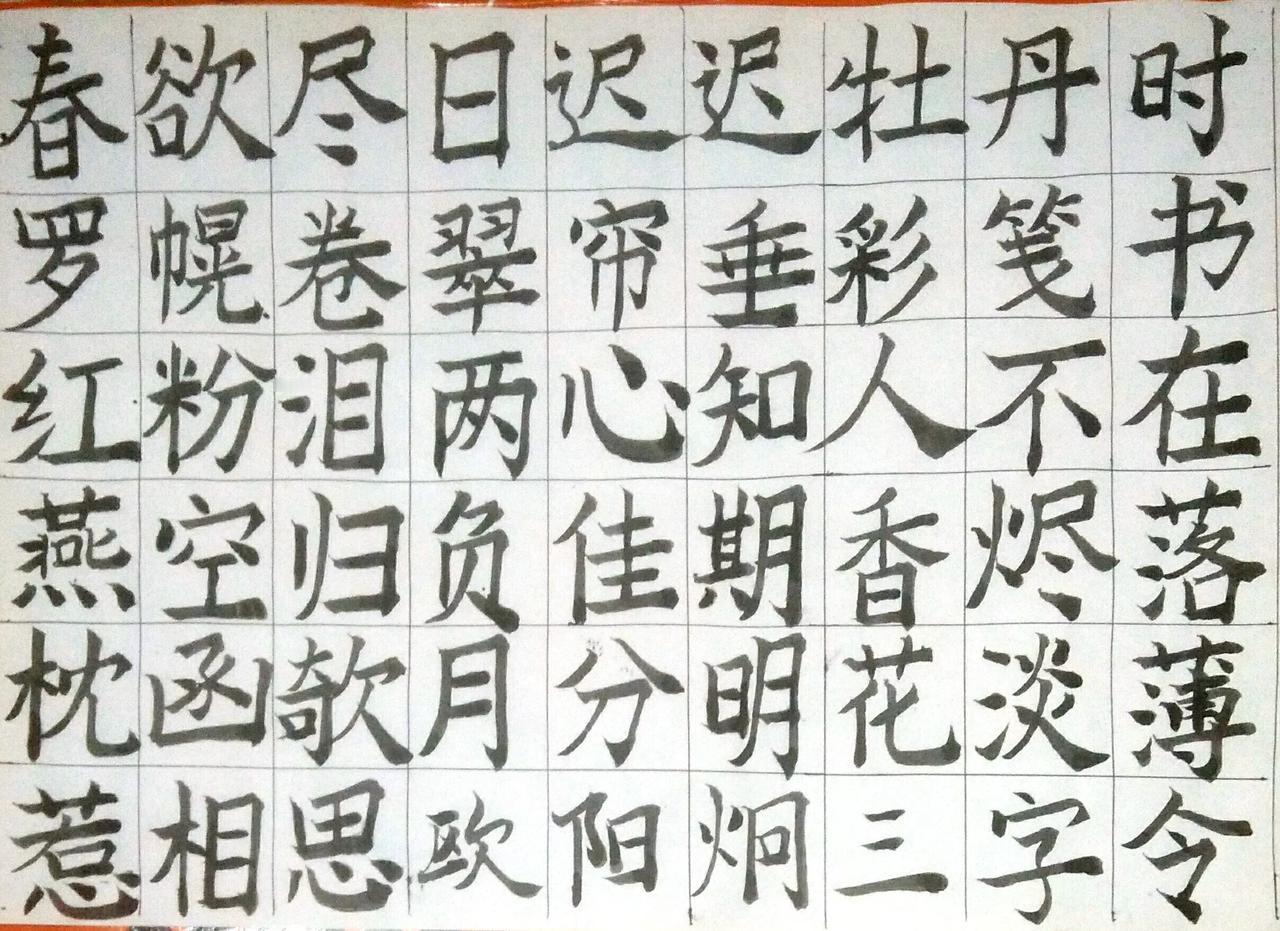 春欲尽日迟迟牡丹时
罗幌卷翠帘垂彩笺书
红粉泪两心知人不在
燕空归负佳期香烬落
枕函欹月分明花淡薄
惹相思欧阳炯三字令